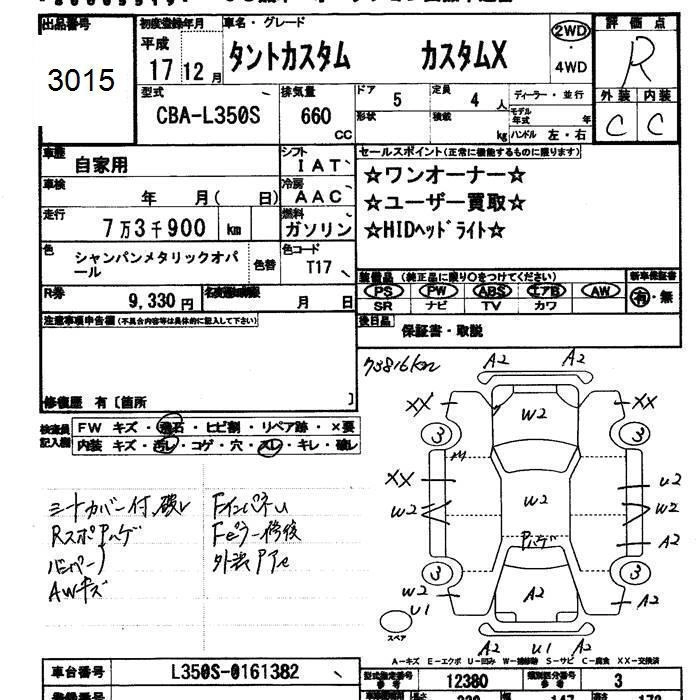 出品番号 初度登録年月 車名・グレード 2WD 評価点
3015 平成 17 12月 タントカスタム カスタムX 4WD R
型式 排気量 ドア 定員 ディーラー・並行 外装 内装
CBA-L350S 660 CC 5 4 人 モデル年式 年 C C
形状 積載 kg ハンドル 左・右
車歴 自家用 シフト IAT セールスポイント(正常に機能するものに限ります)
車検 年 月( 日) 冷房 AAC ☆ワンオーナー☆
走行 7万3千900 km 燃料 ガソリン ☆ユーザー買取☆
☆HIDヘッドライト☆
色 シャンパンメタリックオパール 色替 色コード T17
装備品 (純正品に限り○をつけてください) 新車保証書
PS PW ABS エアB AW 有・無
SR ナビ TV カワ
R券 9,330円 月 日
後日品 保証書・取説
注意事項申告欄(不具合内容等は具体的に記入して下さい)
修復歴 有〔箇所 〕
検査員記入欄 FW キズ・飛石・ヒビ割・リペア跡・×要
内装 キズ・汚レ・コゲ・穴・スレ・キレ・破レ
73816km A2 A2
XX W2 XX
3 3
XX U2
W2 W2 W2
A2
Pハゲ
3 3
W2 A2 A2
U1
A2 U1 A2
スペア
シートカバー付、破レ FインパネU
RスポPハゲ Fピラー修後
AWキズ
A-キズ E-エクボ U-凹み W-補修跡 S-サビ C-腐食 XX-交換済
車台番号 L350S-0161382 型式指定番号 参考 12380 類別区分番号 参考 3